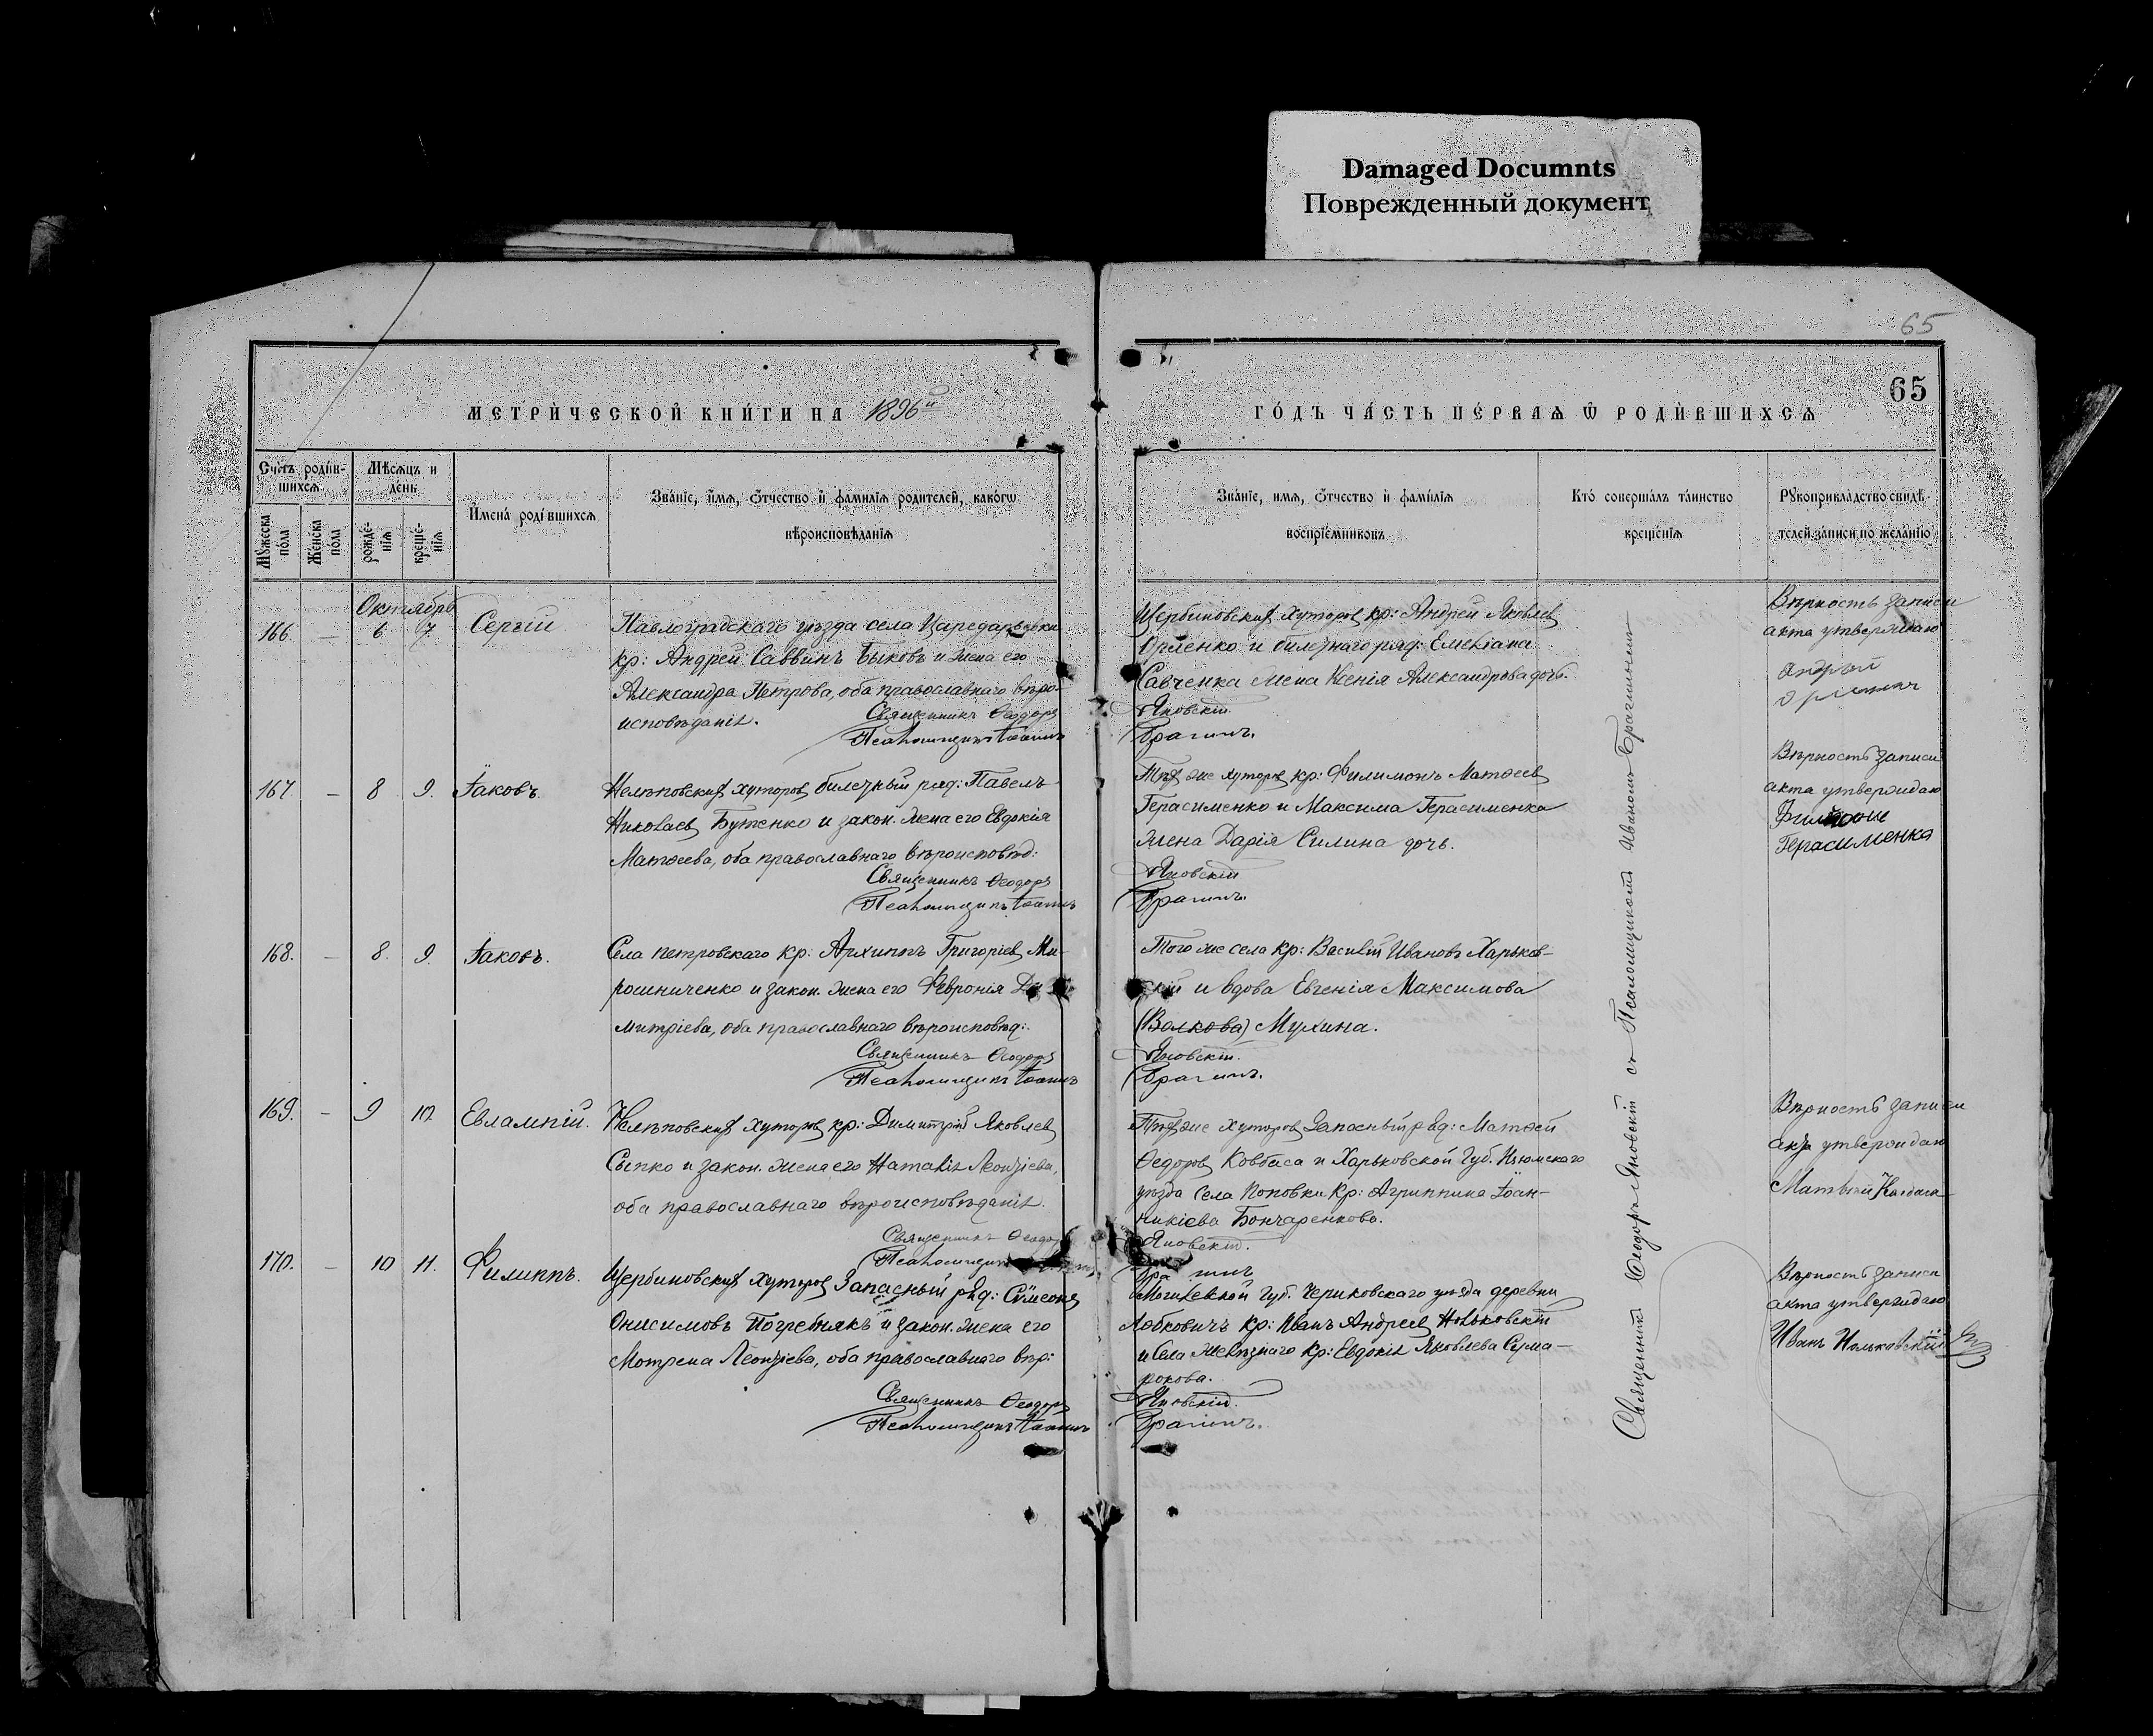 Damaged Documnts
Поврежденный документ
65
65
МЕТРИ́ЧЕСКОЙ КНИ́ГИ НА 1896й
ГО́ДЪ ЧА́СТЬ ПЕ́РВАѦ Ѡ РОДИ́ВШИХСѦ
Сче́тъ роди́в-
шихсѧ
Мѣ́сѧцъ и
де́нь
Мꙋ́жеска
по́ла
Же́нска
по́ла
рожде́-
нїѧ
креще́-
нїѧ
Имена́ роди́вшихсѧ
Зва́нїе, и́мѧ, ѻ́тчество и҆ фами́лїѧ роди́телей, како́гѡ
вѣроисповѣ́данїѧ
Зва́нїе, имѧ, ѻ́тчество и҆ фами́лїѧ
воспрїе́мниковъ
Кто́ соверша́лъ та́инство
креще́нїѧ
Рꙋкоприкла́дство свидѣ́-
телей за́писи по жела́нїю
Октябрь
166. — 6 7. Сергій
Павлоградскаго уѣзда села Царедаровки
кр: Андрей Саввинъ Быковъ и жена его
Александра Петрова, оба православнаго вѣро-
исповѣданія.
Священникъ Ѳеодоръ
Псаломщикъ Іоаннъ
Щербиновскихъ хуторовъ кр: Андрей Яковлевъ
и билетнаго ряд: Емеліана
Савченка жена Ксенія Александрова дочь.
Яновскій
Брагинъ.
Вѣрность записи
акта утверждаю
Андрей
167. — 8 9. Іаковъ
Нелѣповскихъ хуторовъ билетный ряд: Павелъ
Николаевъ Бутенко и закон. жена его Евдокія
Матѳеева, оба православнаго вѣроисповѣд:
Священникъ Ѳеодоръ
Псаломщикъ Іоаннъ
Тѣхъ же хуторовъ кр: Филимонъ Матѳеевъ
Герасименко и Максима Герасименка
жена Дарія Силина дочь.
Яновскій
Брагинъ.
Вѣрность записи
акта утверждаю
Герасименка
168. — 8. 9. Іаковъ.
Села Петровскаго кр: Архиппъ Григоріевъ Ми-
рошниченко и закон. жена его Февронія Ди
митріева, оба православнаго вѣроисповѣд:
Священникъ Ѳеодоръ
Псаломщикъ Іоаннъ
Того же села кр: Василій Ивановъ Харьков-
скій и вдова Евгенія Максимова
(Волкова) Мухина.
Яновскій.
Брагинъ.
169. — 9 10. Евлампій.
Нелѣповскихъ хуторовъ кр: Димитрій Яковлевъ
Сыпко и закон. жена его Наталія Леонтіева,
оба православнаго вѣроисповѣданія.
Священникъ Ѳеодоръ
Псаломщикъ
Тѣхъ же хуторовъ Запасный ряд: Матѳей
Ѳедоровъ Ковбаса и Харьковской Губ. Изюмскаго
уѣзда села Поповки Кр: Агриппина Іоан-
никіева Бончаренкова.
Яновскій.
Вѣрность записи
акта утверждаю
170. — 10 11. Филиппъ.
Щербиновскихъ хуторовъ Запасный ряд: Сѵмеонъ
Онисимовъ Погребнякъ и закон. жена его
Мотрена Леонтіева, оба православнаго вѣр:
Священникъ Ѳеодоръ
Псаломщикъ Іоаннъ
Могилевской Губ. Чериковскаго уѣзда деревни
Лобковичъ кр: Иванъ Андреевъ Нольковскій
и села Желѣзнаго кр: Евдокія Яковлева Сума-
рокова.
Яновскій.
Брагинъ.
Вѣрность записи
акта утверждаю
Иванъ Нольковскій
Священникъ Ѳеодоръ Яновскій съ Псаломщикомъ Иваномъ Брагинымъ